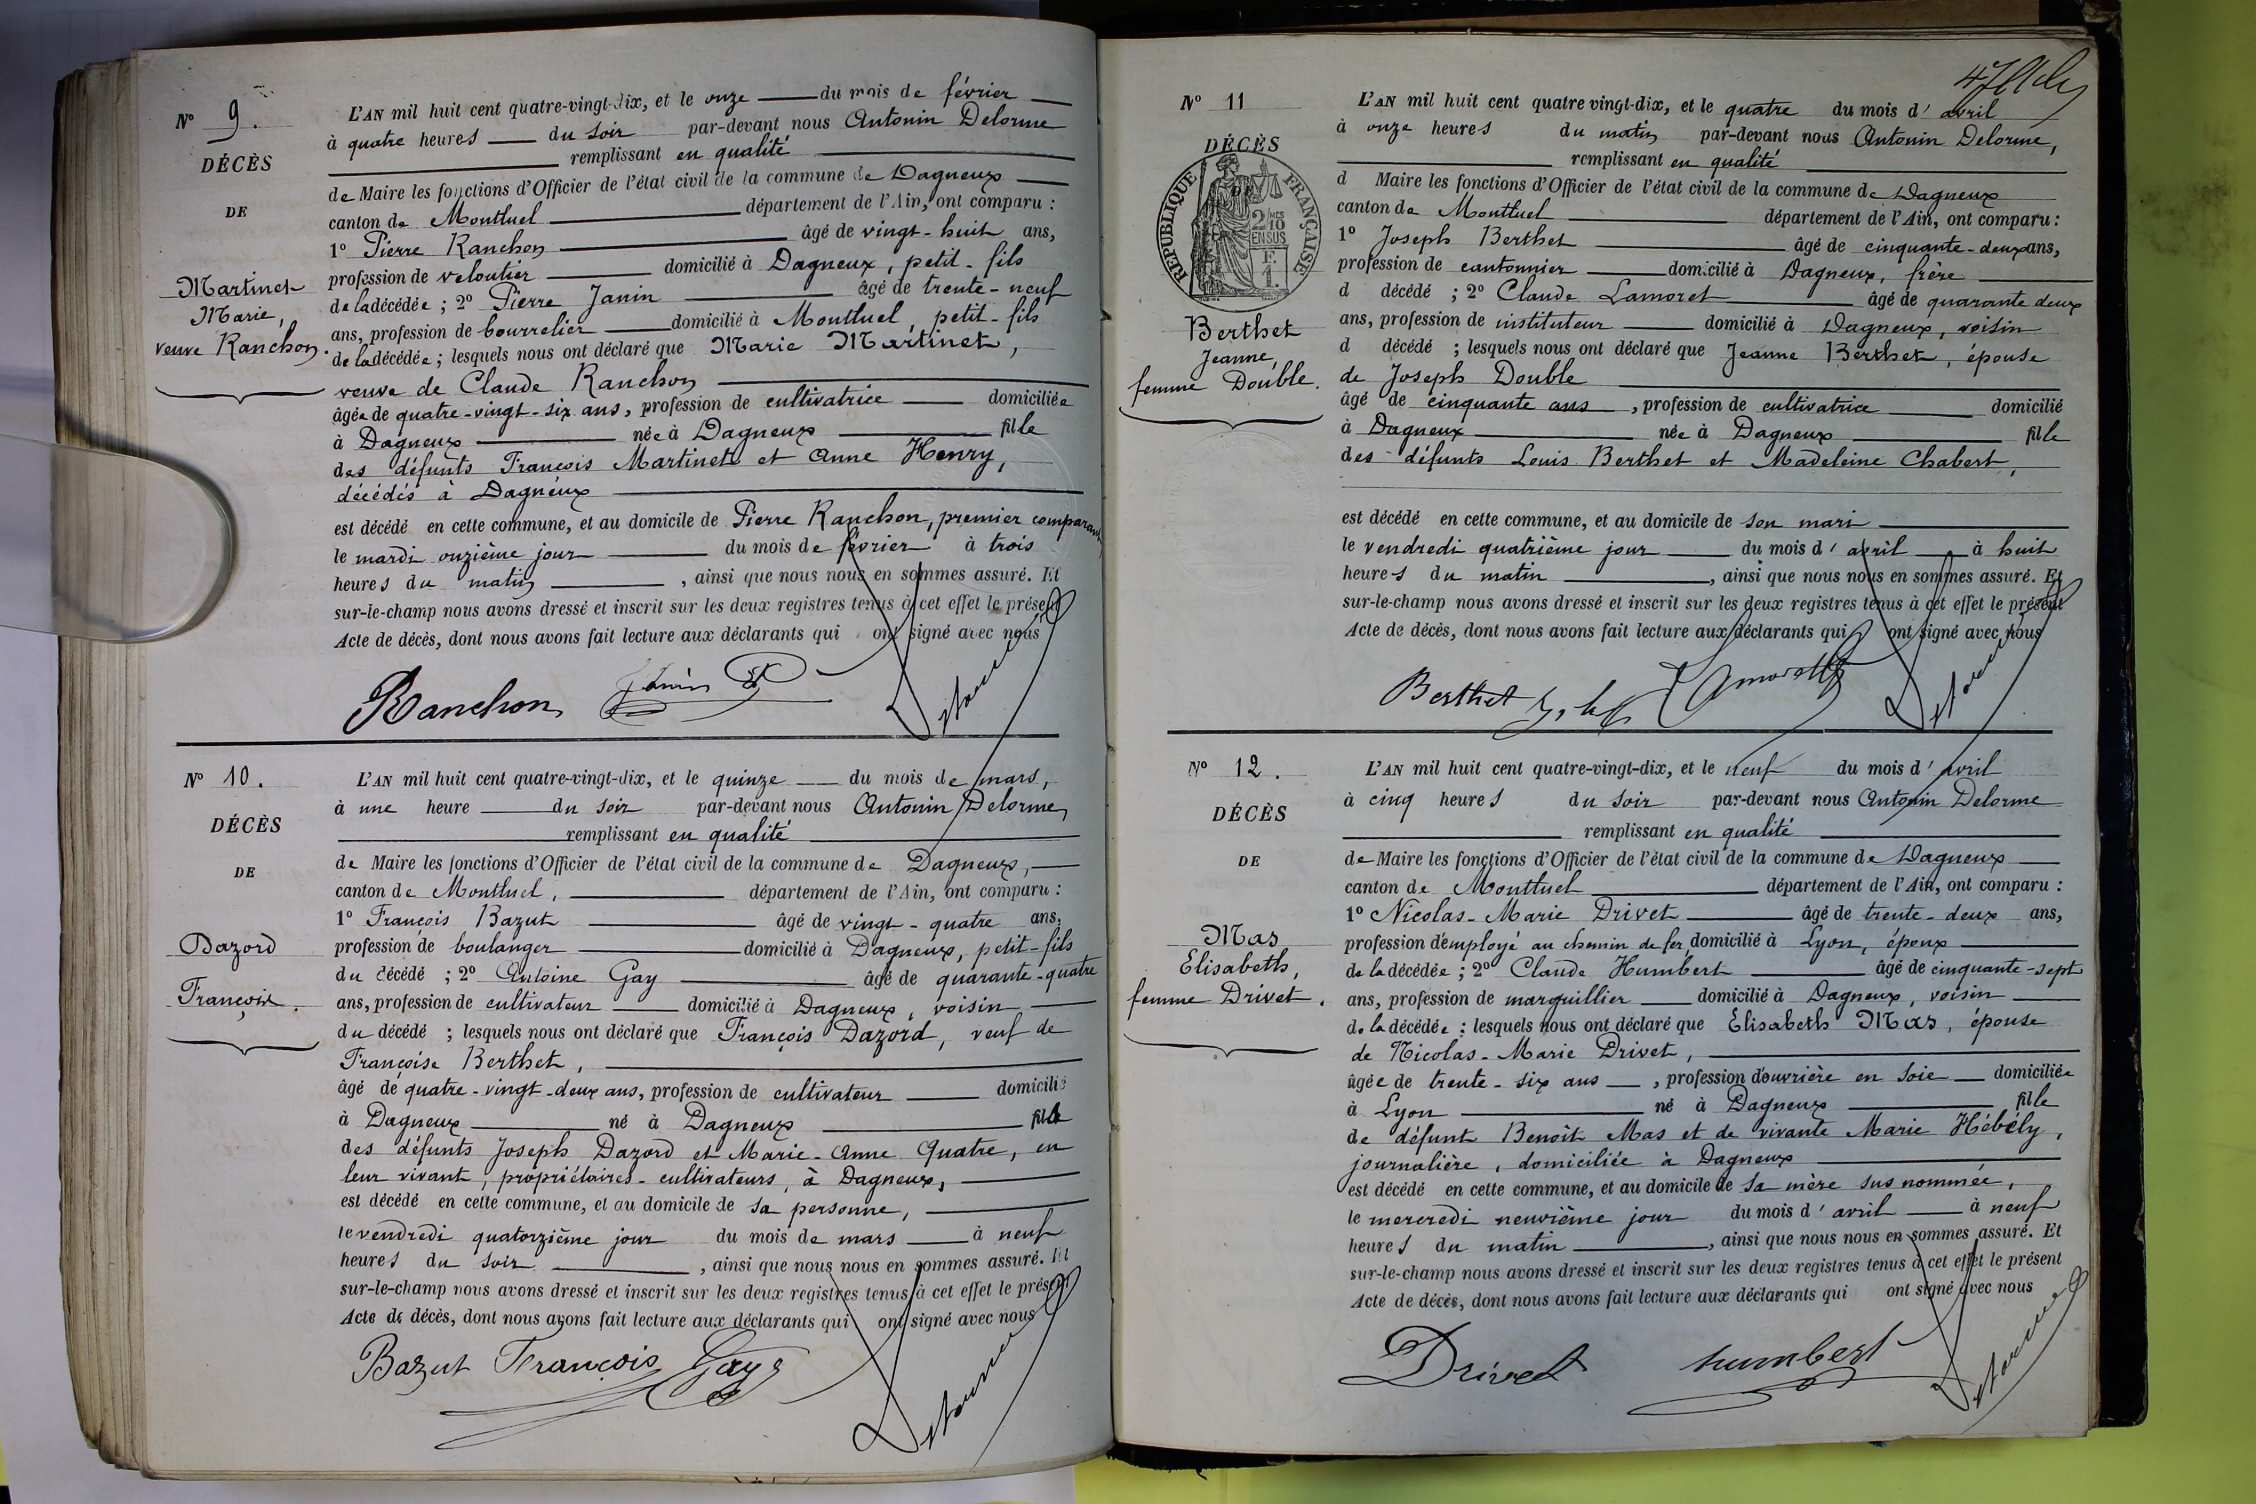 Nº 9.
DÉCÈS
DE
Martinet
Marie,
veuve Ranchon.
L'AN mil huit cent quatre-vingt-dix, et le onze du mois de février
à quatre heures du soir par-devant nous Antonin Delorme
remplissant en qualité
de Maire les fonctions d'Officier de l'état civil de la commune de Dagneux
canton de Montluel département de l'Ain, ont comparu :
1º Pierre Ranchon âgé de vingt-huit ans,
profession de veloutier domicilié à Dagneux, petit-fils
de la décédée ; 2º Pierre Janin âgé de trente-neuf
ans, profession de bourrelier domicilié à Montluel, petit-fils
de la décédée ; lesquels nous ont déclaré que Marie Martinet,
veuve de Claude Ranchon
âgée de quatre-vingt-six ans, profession de cultivatrice domiciliée
à Dagneux née à Dagneux fille
des défunts François Martinet et Anne Henry,
décédés à Dagneux
est décédé en cette commune, et au domicile de Pierre Ranchon, premier comparant
le mardi onzième jour du mois de février à trois
heures du matin , ainsi que nous nous en sommes assuré. Et
sur-le-champ nous avons dressé et inscrit sur les deux registres tenus à cet effet le présent
Acte de décès, dont nous avons fait lecture aux déclarants qui ont signé avec nous
Ranchon Janin Delorme
Nº 10.
DÉCÈS
DE
Dazord
François.
L'AN mil huit cent quatre-vingt-dix, et le quinze du mois de mars,
à une heure du soir par-devant nous Antonin Delorme,
remplissant en qualité
de Maire les fonctions d'Officier de l'état civil de la commune de Dagneux,
canton de Montluel, département de l'Ain, ont comparu :
1º François Bazut âgé de vingt-quatre ans,
profession de boulanger domicilié à Dagneux, petit-fils
du décédé ; 2º Antoine Gay âgé de quarante-quatre
ans, profession de cultivateur domicilié à Dagneux, voisin
du décédé ; lesquels nous ont déclaré que François Dazord, veuf de
Françoise Berthet,
âgé de quatre-vingt-deux ans, profession de cultivateur domicilié
à Dagneux né à Dagneux fils
des défunts Joseph Dazord et Marie-Anne Quatre, en
leur vivant, propriétaires-cultivateurs, à Dagneux,
est décédé en cette commune, et au domicile de sa personne,
le vendredi quatorzième jour du mois de mars à neuf
heures du soir , ainsi que nous nous en sommes assuré. Et
sur-le-champ nous avons dressé et inscrit sur les deux registres tenus à cet effet le présent
Acte de décès, dont nous avons fait lecture aux déclarants qui ont signé avec nous
Bazut François Gay Delorme
47
Nº 11
DÉCÈS
DE
RÉPUBLIQUE FRANÇAISE
2/10 MES
EN SUS
F.
1.
Berthet
Jeanne,
femme Double.
L'AN mil huit cent quatre vingt-dix, et le quatre du mois d'avril
à onze heures du matin par-devant nous Antonin Delorme,
remplissant en qualité
d Maire les fonctions d'Officier de l'état civil de la commune de Dagneux
canton de Montluel département de l'Ain, ont comparu :
1º Joseph Berthet âgé de cinquante-deux ans,
profession de cantonnier domicilié à Dagneux, frère
d décédé ; 2º Claude Lamoret âgé de quarante deux
ans, profession de instituteur domicilié à Dagneux, voisin
d décédé ; lesquels nous ont déclaré que Jeanne Berthet, épouse
de Joseph Double
âgé de cinquante ans, profession de cultivatrice domicilié
à Dagneux née à Dagneux fille
des défunts Louis Berthet et Madeleine Chabert,
est décédé en cette commune, et au domicile de son mari
le vendredi quatrième jour du mois d'avril à huit
heures du matin , ainsi que nous nous en sommes assuré. Et
sur-le-champ nous avons dressé et inscrit sur les deux registres tenus à cet effet le présent
Acte de décès, dont nous avons fait lecture aux déclarants qui ont signé avec nous
Berthet Delorme
Nº 12.
DÉCÈS
DE
Mas
Élisabeth,
femme Drivet.
L'AN mil huit cent quatre-vingt-dix, et le neuf du mois d'avril
à cinq heures du soir par-devant nous Antonin Delorme
remplissant en qualité
de Maire les fonctions d'Officier de l'état civil de la commune de Dagneux
canton de Montluel département de l'Ain, ont comparu :
1º Nicolas-Marie Drivet âgé de trente-deux ans,
profession d'employé au chemin de fer, domicilié à Lyon, époux
de la décédée ; 2º Claude Humbert âgé de cinquante-sept
ans, profession de marguillier domicilié à Dagneux, voisin
de la décédée ; lesquels nous ont déclaré que Élisabeth Mas, épouse
de Nicolas-Marie Drivet,
âgée de trente-six ans, profession d'ouvrière en soie domiciliée
à Lyon né à Dagneux fille
de défunt Benoît Mas et de vivante Marie Hébély,
journalière, domiciliée à Dagneux
est décédé en cette commune, et au domicile de sa mère sus nommée,
le mercredi neuvième jour du mois d'avril à neuf
heures du matin , ainsi que nous nous en sommes assuré. Et
sur-le-champ nous avons dressé et inscrit sur les deux registres tenus à cet effet le présent
Acte de décès, dont nous avons fait lecture aux déclarants qui ont signé avec nous
Drivet humbert Delorme